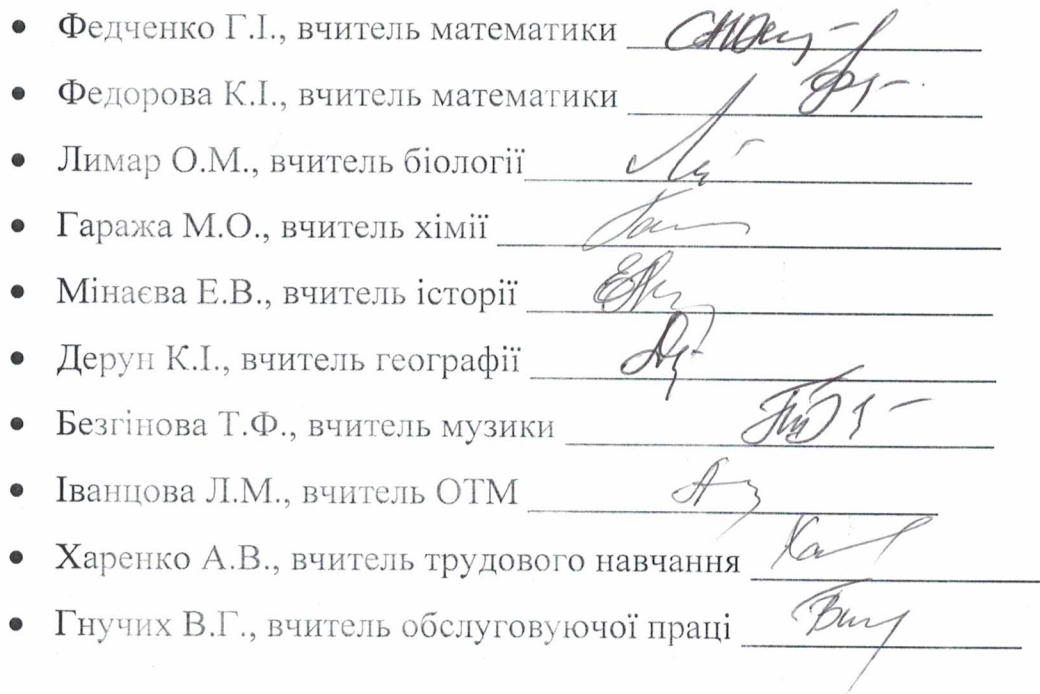 • Федченко Г.І., вчитель математики
• Федорова К.І., вчитель математики
• Лимар О.М., вчитель біології
• Гаража М.О., вчитель хімії
• Мінаєва Е.В., вчитель історії
• Дерун К.І., вчитель географії
• Безгінова Т.Ф., вчитель музики
• Іванцова Л.М., вчитель ОТМ
• Харенко А.В., вчитель трудового навчання
• Гнучих В.Г., вчитель обслуговуючої праці